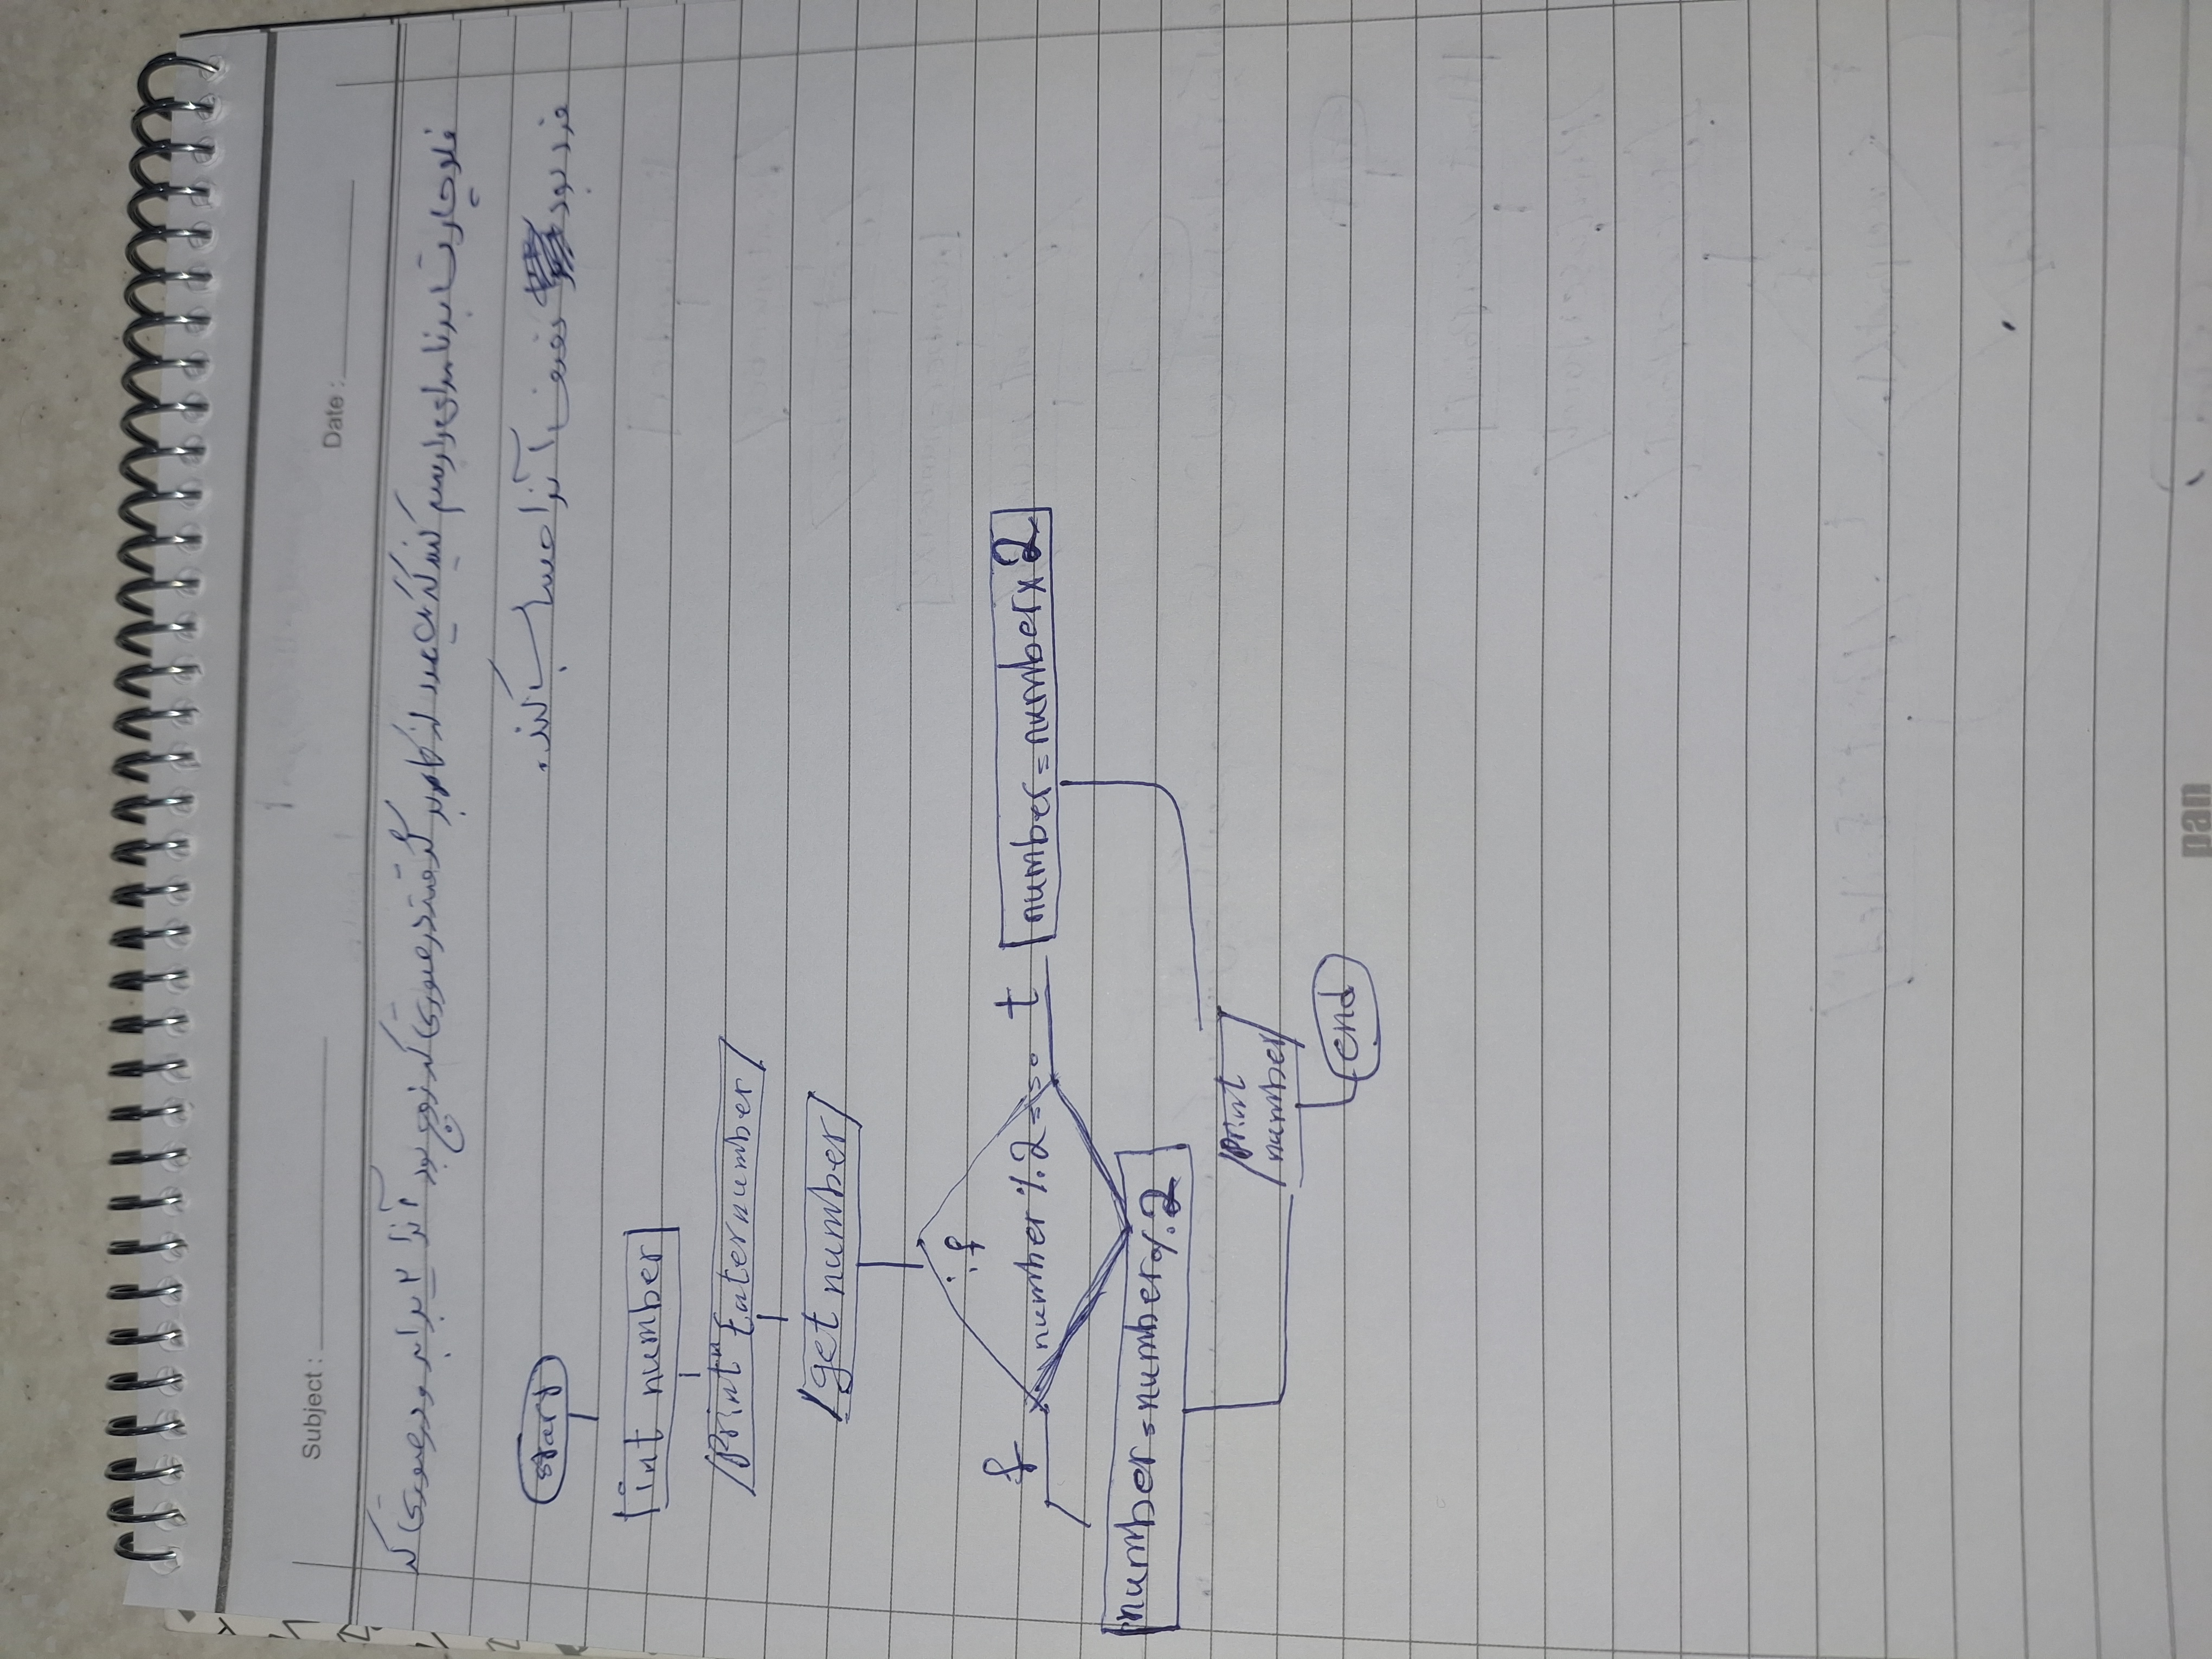 Subject :
Date :
فلوچارت برنامه‌ای را رسم کنید که یک عدد از کاربر گرفته در صورتی که زوج بود آنرا ۲ برابر و در صورتی که
فرد بود نصف آنرا حساب کند.
start
int number
print "Enter number
get number
if
f
number % 2 == 0
t
number = number x 2
number = number % 2
print
number
end
pan